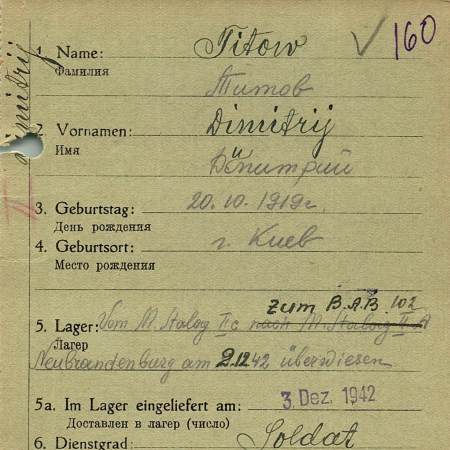 Dimitrij
160
1. Name: Titow
Фамилия Титов
2. Vornamen: Dimitrij
Имя Дмитрий
3. Geburtstag: 20.10.1919г.
День рождения
4. Geburtsort: г. Киев
Место рождения
zum B.A.B. 102
5. Lager: Vom M. Stalag II c nach M. Stalag II A
Лагерь
Neubrandenburg am 2.12.42 überwiesen
5a. Im Lager eingeliefert am: 3. Dez. 1942
Доставлен в лагерь (число)
6. Dienstgrad: Soldat